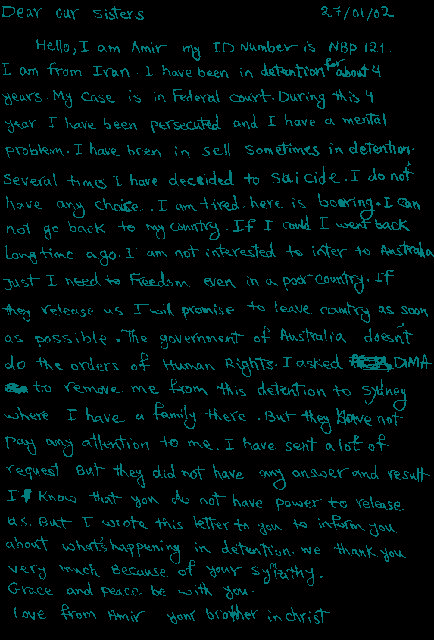 Dear our Sisters 27/01/02
Hello, I am Amir my ID Number is NBP 121.
I am from Iran. I have been in detention for about 4
years. My case is in Federal court. During this 4
year I have been persecuted and I have a mental
problem. I have been in sell sometimes in detention.
Several times I have decided to suicide. I do not
have any choise.. I am tired. here is boering. I can
not go back to my country. If I could I went back
longtime ago. I am not interested to inter to Australia
just I need to Freedom even in a poor country. If
they release us I will promise to leave country as soon
as possible. The government of Australia doesn't
do the orders of Human Rights. I asked DIMA
to remove me from this detention to Sydney
where I have a family there. But they have not
pay any attention to me. I have sent a lot of
request But they did not have any answer and result
I know that you do not have power to release
us. But I wrote this letter to you to inform you
about what's happening in detention. we thank you
very much Because of your sympathy.
Grace and peace be with you.
Love from Amir your brother in christ